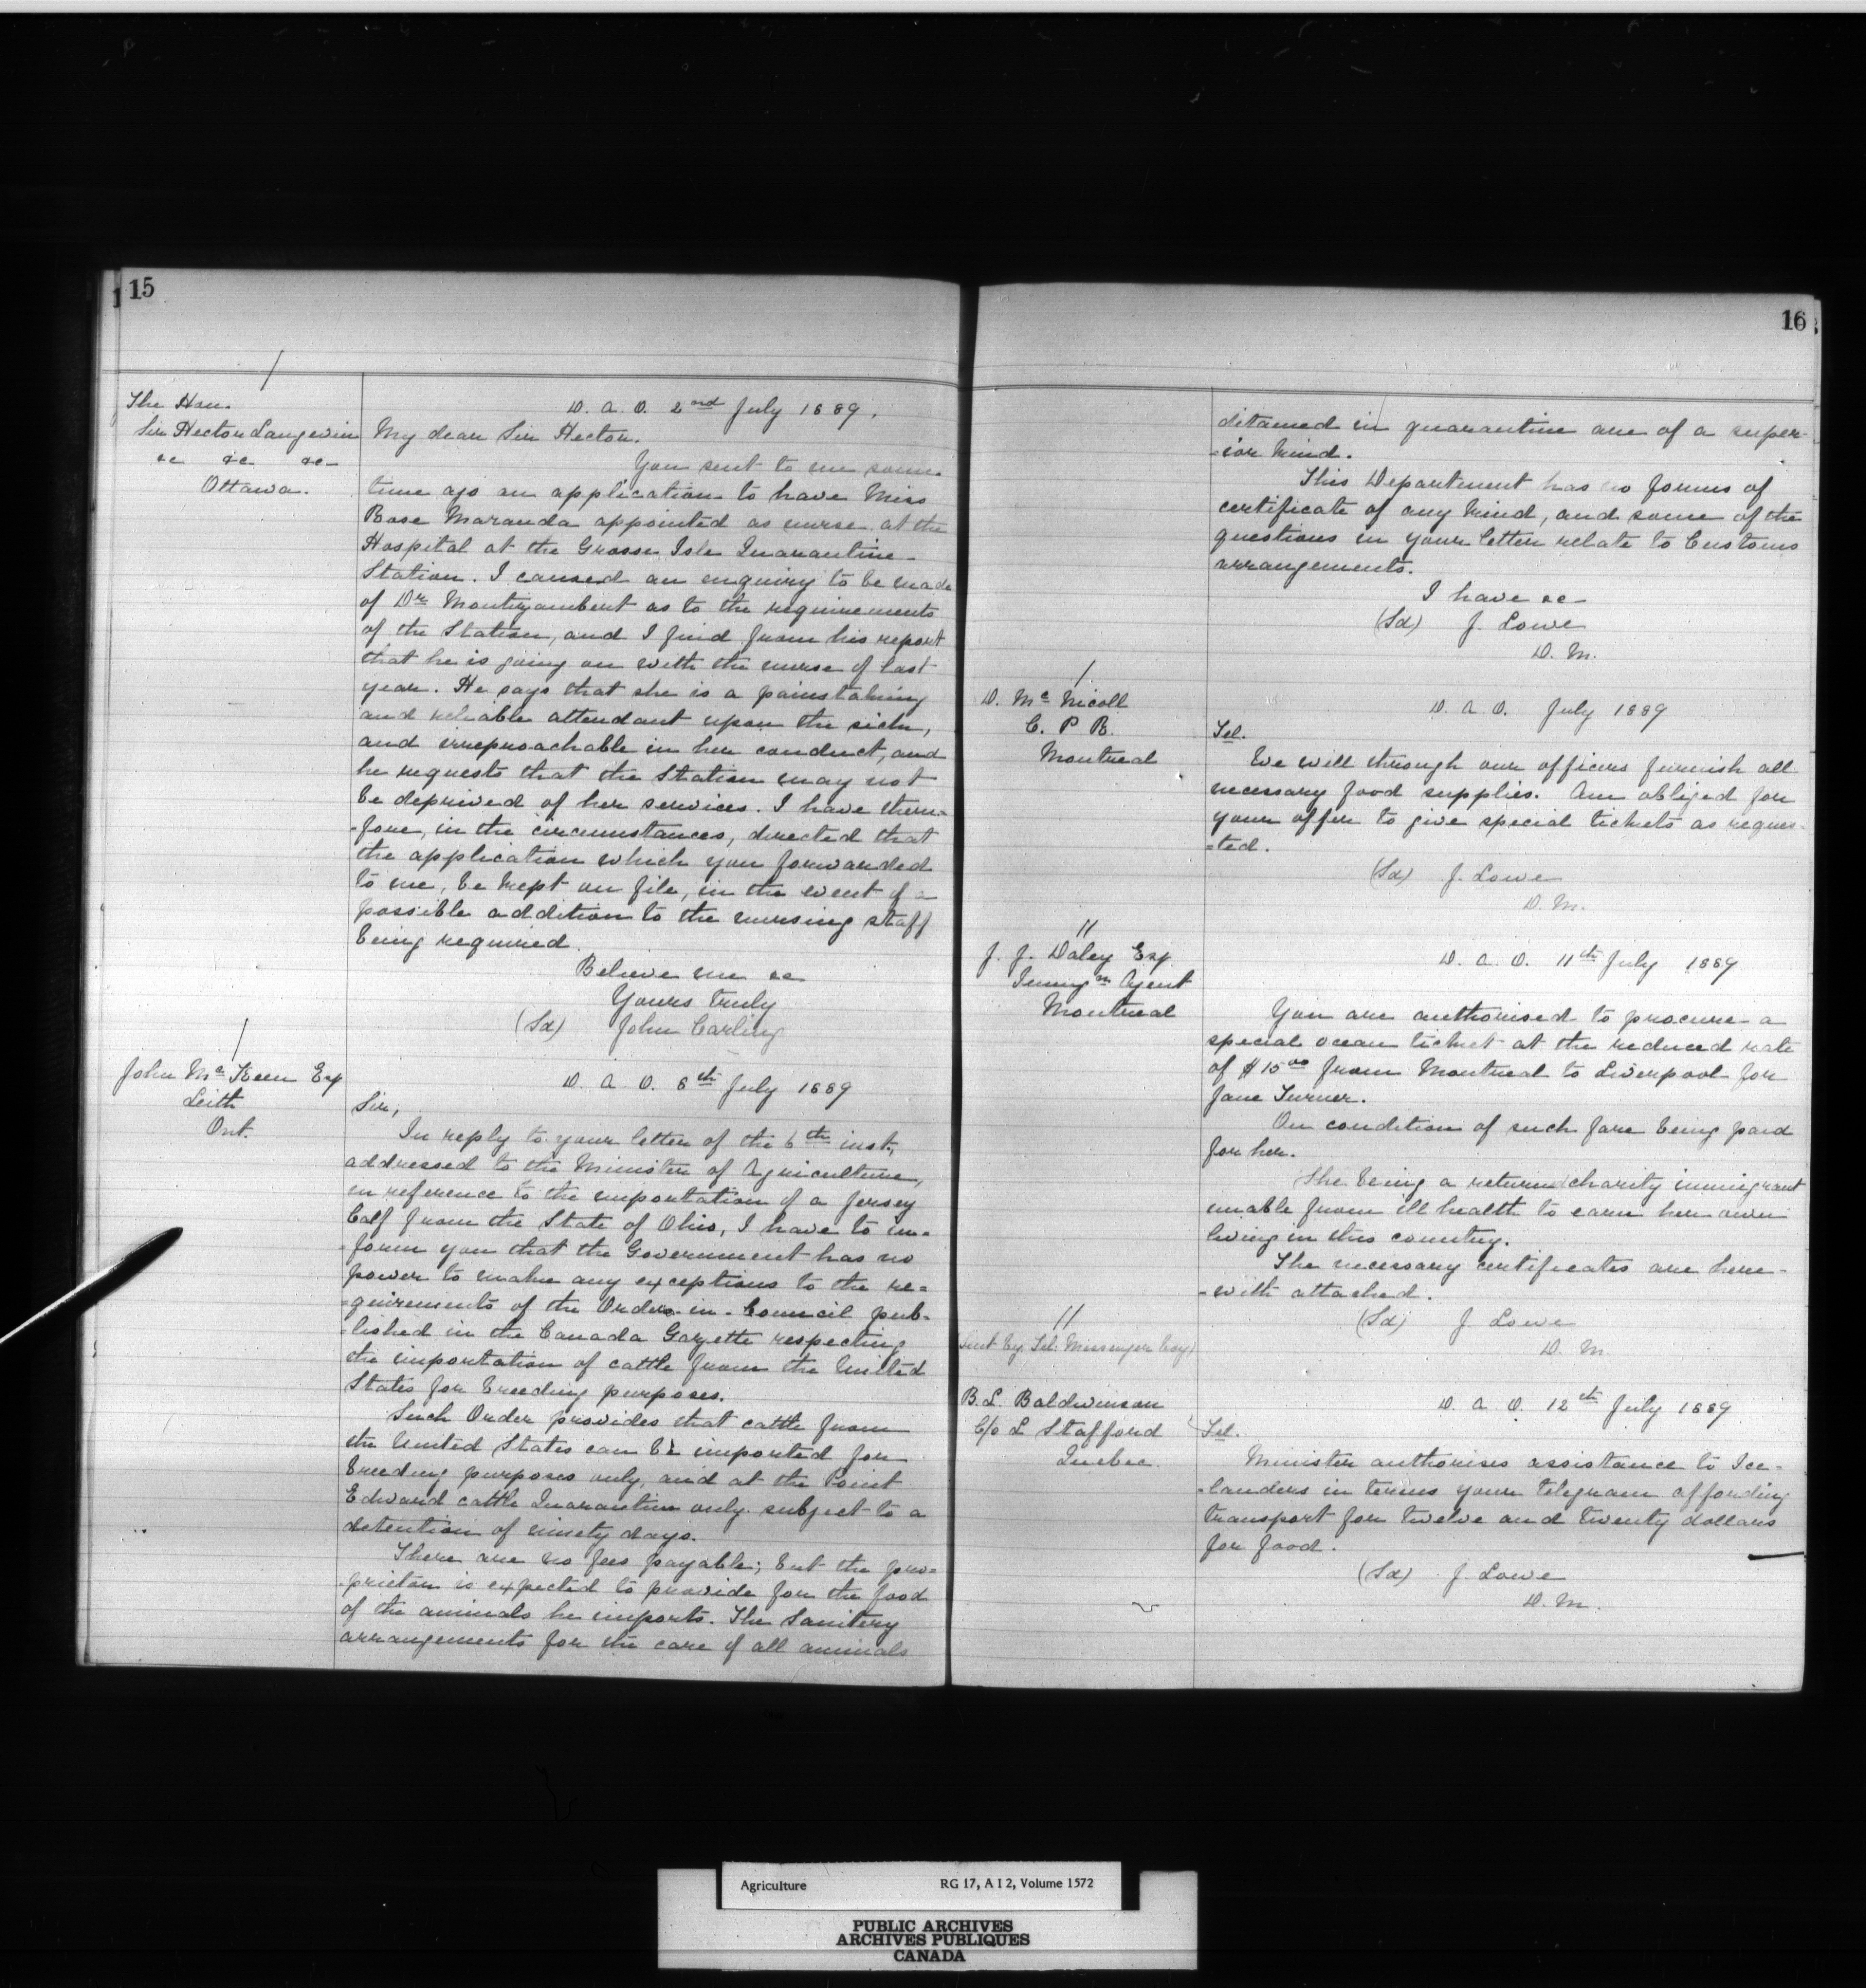 15
The Hon.
Sir Hector Langevin
&c &c &c
Ottawa.
D. A. O. 2nd July 1889.
My dear Sir Hector.
You sent to me some
time ago an application to have Miss
Rose Maranda appointed as nurse at the
Hospital at the Grosse Isle Quarantine
Station. I caused an enquiry to be made
of Dr Montizambert as to the requirements
of the Station, and I find from his report
that he is going on with the nurse of last
year. He says that she is a painstaking
and reliable attendant upon the sick,
and irreproachable in her conduct, and
he requests that the Station may not
be deprived of her services. I have there-
-fore, in the circumstances, directed that
the application which you forwarded
to me, be kept on file, in the event of a
possible addition to the nursing staff
being required.
Believe me &c
Yours truly
(Sd) John Carling
John McKeen Esq
Leith
Ont.
D. A. O. 8th July 1889
Sir,
In reply to your letter of the 6th inst.,
addressed to the Minister of Agriculture,
in reference to the importation of a Jersey
Calf from the State of Ohio, I have to in-
-form you that the Government has no
power to make any exceptions to the re=
=quirements of the Orders-in-Council pub-
-lished in the Canada Gazette respecting
the importation of cattle from the United
States for breeding purposes.
Such Order provides that cattle from
the United States can be imported for
breeding purposes only, and at the Point
Edward cattle Quarantine only subject to a
detention of ninety days.
There are no fees payable; but the pro-
-prietor is expected to provide for the food
of the animals he imports. The Sanitery
arrangements for the care of all animals
16
ditained in quarantine are of a super-
-ior kind.
This Department has no forms of
certificate of any kind, and some of the
questions in your letter relate to Customs
arrangements.
I have &c
(Sd) J. Lowe
D. M.
D. McNicoll
C. P R.
Montreal
D. A. O. July 1889
Tel.
We will through our officers furnish all
necessary food supplies. Am obliged for
your offer to give special tickets as reques-
=ted.
(Sd) J. Lowe
D. M.
J. J. Daley Esq.
Immign Agent
Montreal
D. A. O. 11th July 1889
You are authorised to procure a
special ocean ticket at the reduced rate
of $15.00 from Montreal to Liverpool for
Jane Turner.
On condition of such fare being paid
for her.
She being a return charity immigrant
unable from ill health to earn her own
living in this country.
The necessary certificates are here-
-with attached.
(Sd) J. Lowe
D. M.
Sent by Tel. Messenger boy)
B. L. Baldwinson
C/o L Stafford
Quebec.
D. A. O. 12th July 1889
Tel.
Minister authorises assistance to Ice-
-landers in terms your telegram affording
transport for twelve and twenty dollars
for food.
(Sd) J. Lowe
D. M.
Agriculture RG 17, A I 2, Volume 1572
PUBLIC ARCHIVES
ARCHIVES PUBLIQUES
CANADA